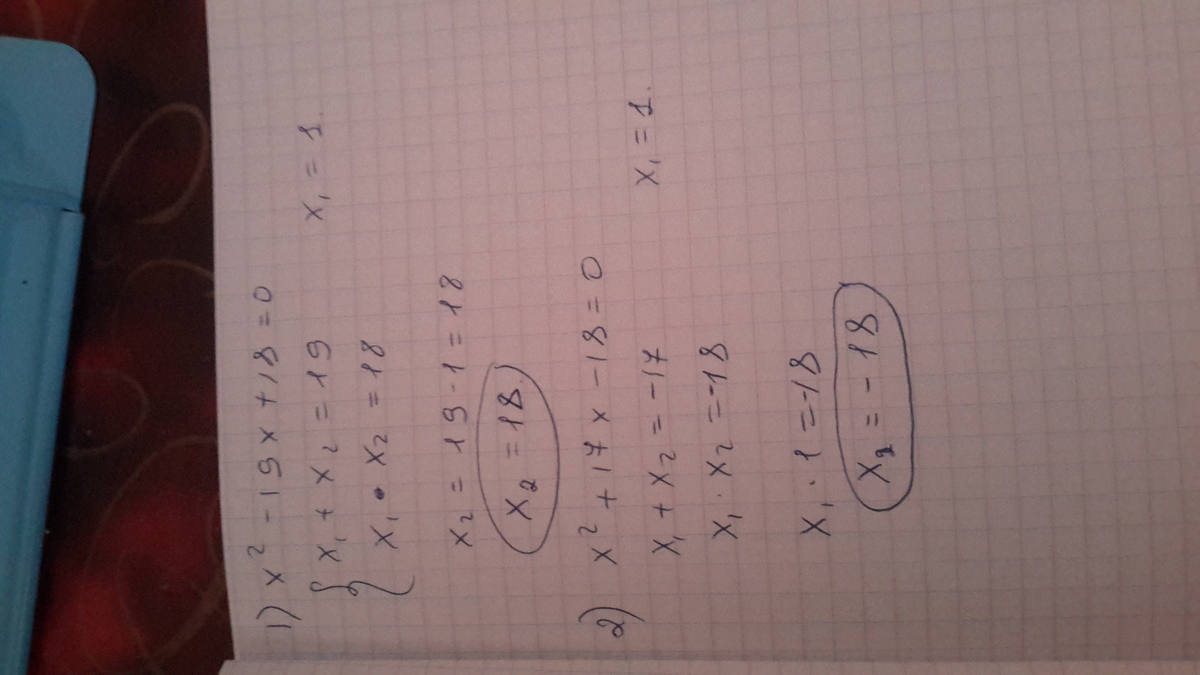 1) x² - 19x + 18 = 0
{ x₁ + x₂ = 19    x₁ = 1.
x₁ • x₂ = 18
x₂ = 19 - 1 = 18
x₂ = 18.
2) x² + 17x - 18 = 0
x₁ + x₂ = -17    x₁ = 1.
x₁ · x₂ = -18
x₁ · 1 = -18
x₂ = -18